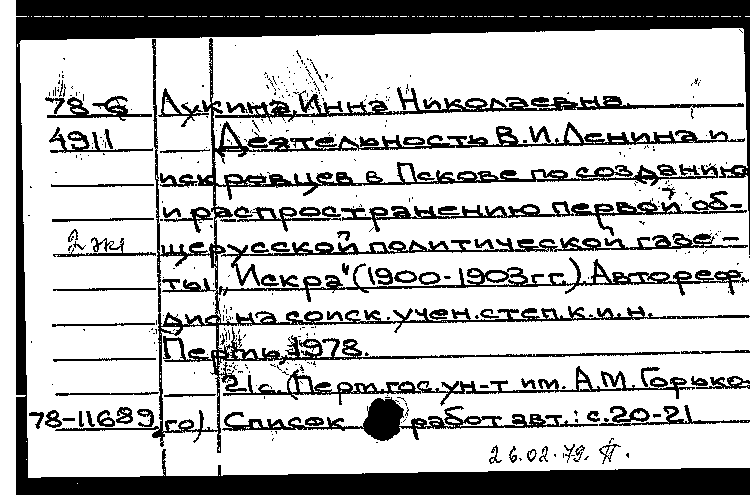 78-6 Лукина, Инна Николаевна.
4911 Деятельность В.И.Ленина и
искровцев в Пскове по созданию
и распространению первой об-
2 экз щерусской политической газе-
ты „Искра" (1900-1903гг.) Автореф.
дис на соиск. учен. степ. к.и.н.
Пермь, 1978.
21с. (Перм. гос. ун-т им. А.М. Горько-
78-11689 го). Список работ авт.: с.20-21
26.02.79. П.